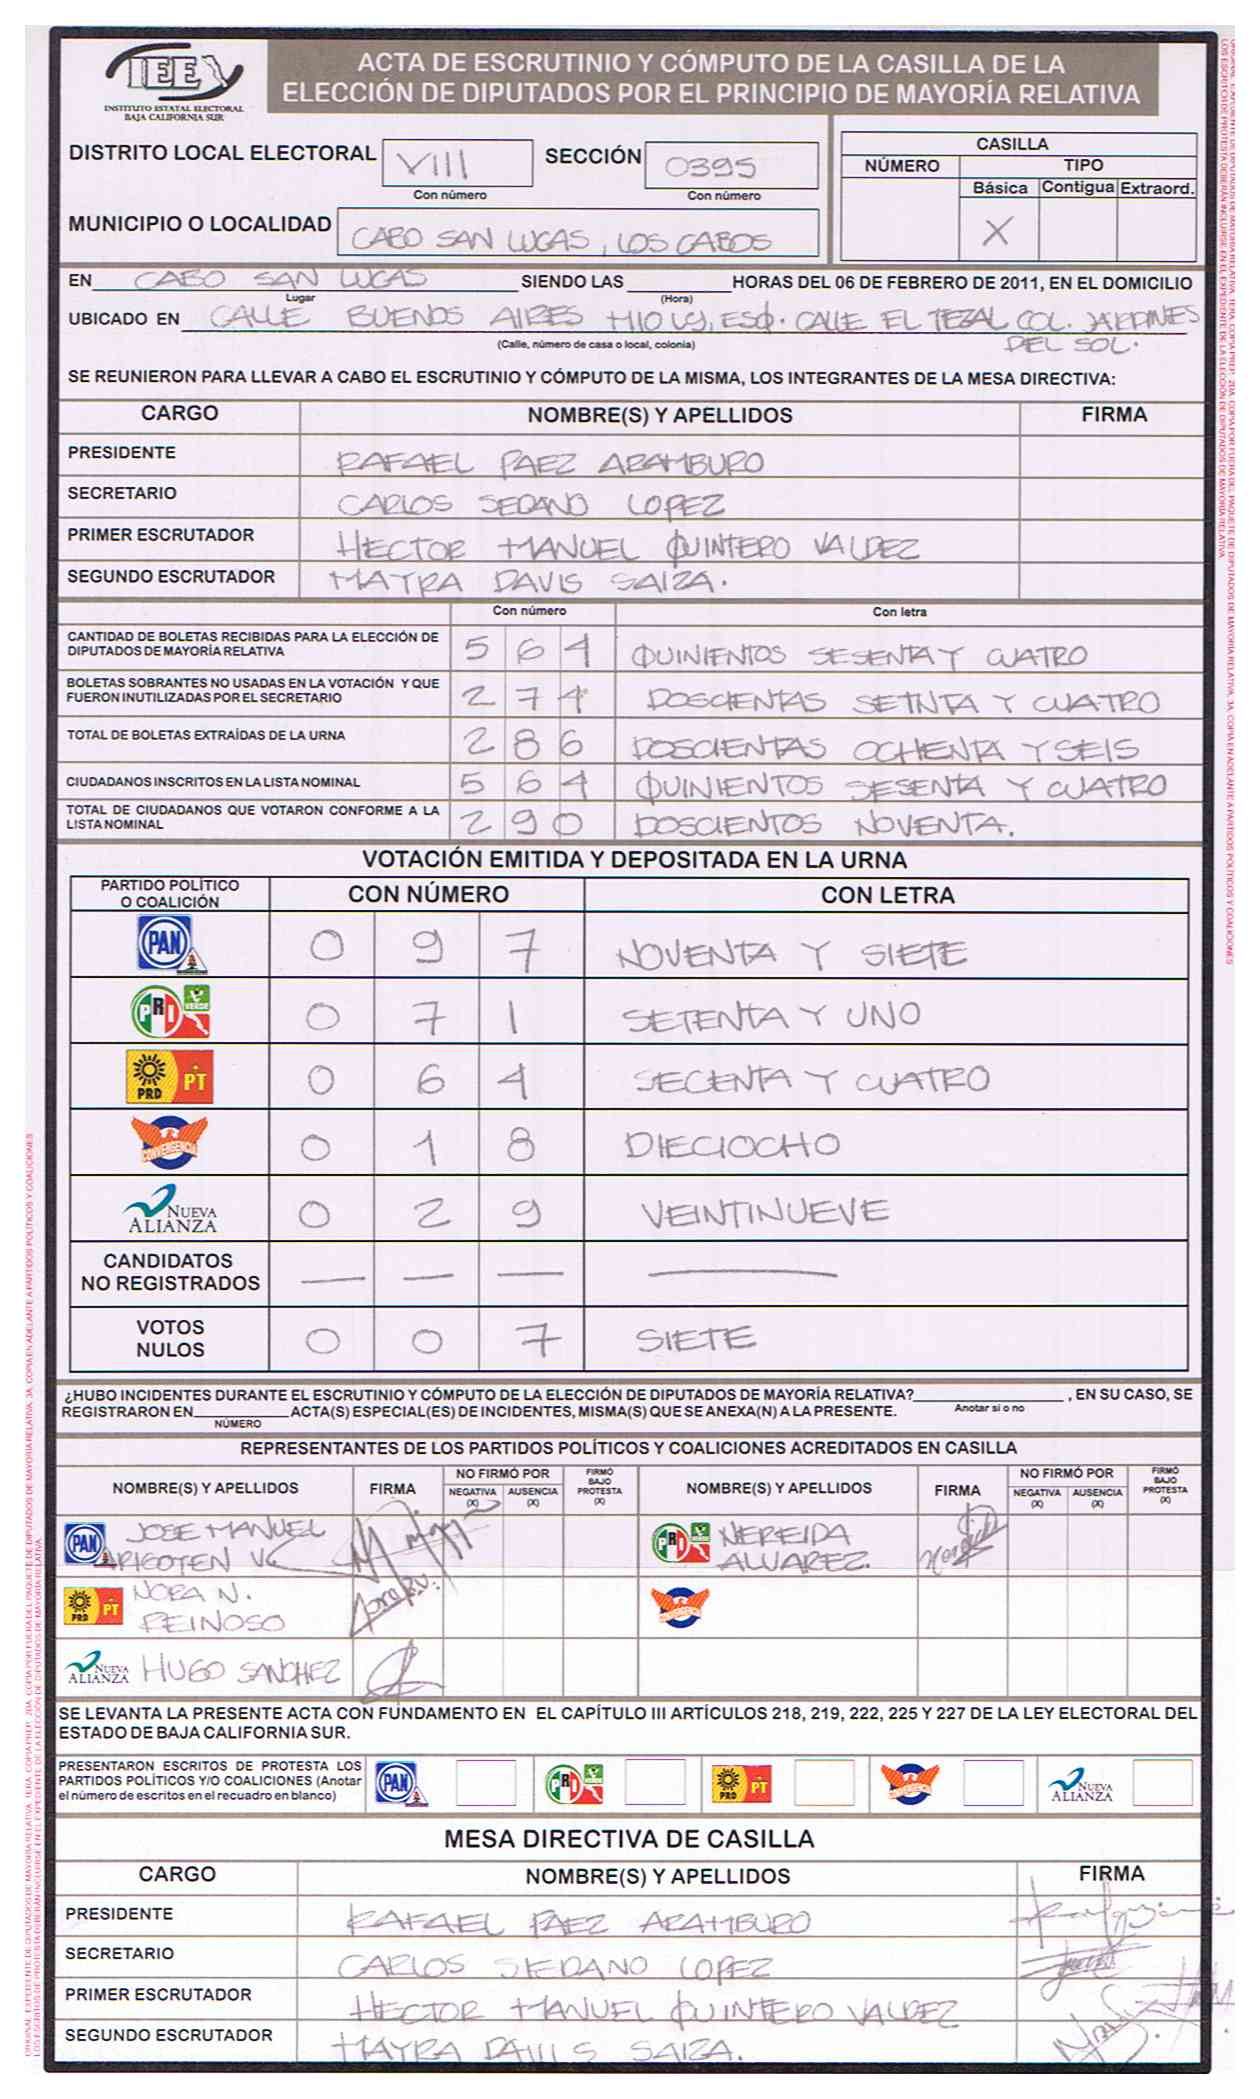 IEE
INSTITUTO ESTATAL ELECTORAL
BAJA CALIFORNIA SUR
ACTA DE ESCRUTINIO Y CÓMPUTO DE LA CASILLA DE LA
ELECCIÓN DE DIPUTADOS POR EL PRINCIPIO DE MAYORÍA RELATIVA
DISTRITO LOCAL ELECTORAL VIII SECCIÓN 0395
Con número Con número
CASILLA
NÚMERO TIPO
Básica Contigua Extraord.
X
MUNICIPIO O LOCALIDAD CABO SAN LUCAS, LOS CABOS
EN CABO SAN LUCAS SIENDO LAS HORAS DEL 06 DE FEBRERO DE 2011, EN EL DOMICILIO
Lugar (Hora)
UBICADO EN CALLE BUENOS AIRES ESQ. CALLE EL TEZAL COL. JARDINES
DEL SOL.
(Calle, número de casa o local, colonia)
SE REUNIERON PARA LLEVAR A CABO EL ESCRUTINIO Y CÓMPUTO DE LA MISMA, LOS INTEGRANTES DE LA MESA DIRECTIVA:
CARGO NOMBRE(S) Y APELLIDOS FIRMA
PRESIDENTE RAFAEL PAEZ ARAMBURO
SECRETARIO CARLOS SEDANO LOPEZ
PRIMER ESCRUTADOR HECTOR MANUEL QUINTERO VALDEZ
SEGUNDO ESCRUTADOR MAYRA DAVIS SAIZA.
Con número Con letra
CANTIDAD DE BOLETAS RECIBIDAS PARA LA ELECCIÓN DE
DIPUTADOS DE MAYORÍA RELATIVA 5 6 4 QUINIENTOS SESENTA Y CUATRO
BOLETAS SOBRANTES NO USADAS EN LA VOTACIÓN Y QUE
FUERON INUTILIZADAS POR EL SECRETARIO 2 7 4 DOSCIENTAS SETNTA Y CUATRO
TOTAL DE BOLETAS EXTRAÍDAS DE LA URNA 2 8 6 DOSCIENTAS OCHENTA Y SEIS
CIUDADANOS INSCRITOS EN LA LISTA NOMINAL 5 6 4 QUINIENTOS SESENTA Y CUATRO
TOTAL DE CIUDADANOS QUE VOTARON CONFORME A LA
LISTA NOMINAL 2 9 0 DOSCIENTOS NOVENTA.
VOTACIÓN EMITIDA Y DEPOSITADA EN LA URNA
PARTIDO POLÍTICO
O COALICIÓN CON NÚMERO CON LETRA
PAN 0 9 7 NOVENTA Y SIETE
PRI VERDE 0 7 1 SETENTA Y UNO
PRD PT 0 6 4 SECENTA Y CUATRO
CONVERGENCIA 0 1 8 DIECIOCHO
NUEVA ALIANZA 0 2 9 VEINTINUEVE
CANDIDATOS
NO REGISTRADOS — — — —
VOTOS
NULOS 0 0 7 SIETE
¿HUBO INCIDENTES DURANTE EL ESCRUTINIO Y CÓMPUTO DE LA ELECCIÓN DE DIPUTADOS DE MAYORÍA RELATIVA? , EN SU CASO, SE
Anotar si o no
REGISTRARON EN ACTA(S) ESPECIAL(ES) DE INCIDENTES, MISMA(S) QUE SE ANEXA(N) A LA PRESENTE.
NÚMERO
REPRESENTANTES DE LOS PARTIDOS POLÍTICOS Y COALICIONES ACREDITADOS EN CASILLA
NOMBRE(S) Y APELLIDOS FIRMA NO FIRMÓ POR NEGATIVA (X) AUSENCIA (X) FIRMÓ BAJO PROTESTA (X) NOMBRE(S) Y APELLIDOS FIRMA NO FIRMÓ POR NEGATIVA (X) AUSENCIA (X) FIRMÓ BAJO PROTESTA (X)
PAN JOSE MANUEL PRI VERDE NEREIDA
ALVAREZ.
PRD PT NORA N.
REINOSO CONVERGENCIA
NUEVA ALIANZA HUGO SANCHEZ
SE LEVANTA LA PRESENTE ACTA CON FUNDAMENTO EN EL CAPÍTULO III ARTÍCULOS 218, 219, 222, 225 Y 227 DE LA LEY ELECTORAL DEL
ESTADO DE BAJA CALIFORNIA SUR.
PRESENTARON ESCRITOS DE PROTESTA LOS
PARTIDOS POLÍTICOS Y/O COALICIONES (Anotar
el número de escritos en el recuadro en blanco) PAN PRI VERDE PRD PT CONVERGENCIA NUEVA ALIANZA
MESA DIRECTIVA DE CASILLA
CARGO NOMBRE(S) Y APELLIDOS FIRMA
PRESIDENTE RAFAEL PAEZ ARAMBURO
SECRETARIO CARLOS SEDANO LOPEZ
PRIMER ESCRUTADOR HECTOR MANUEL QUINTERO VALDEZ
SEGUNDO ESCRUTADOR MAYRA DAVIS SAIZA.